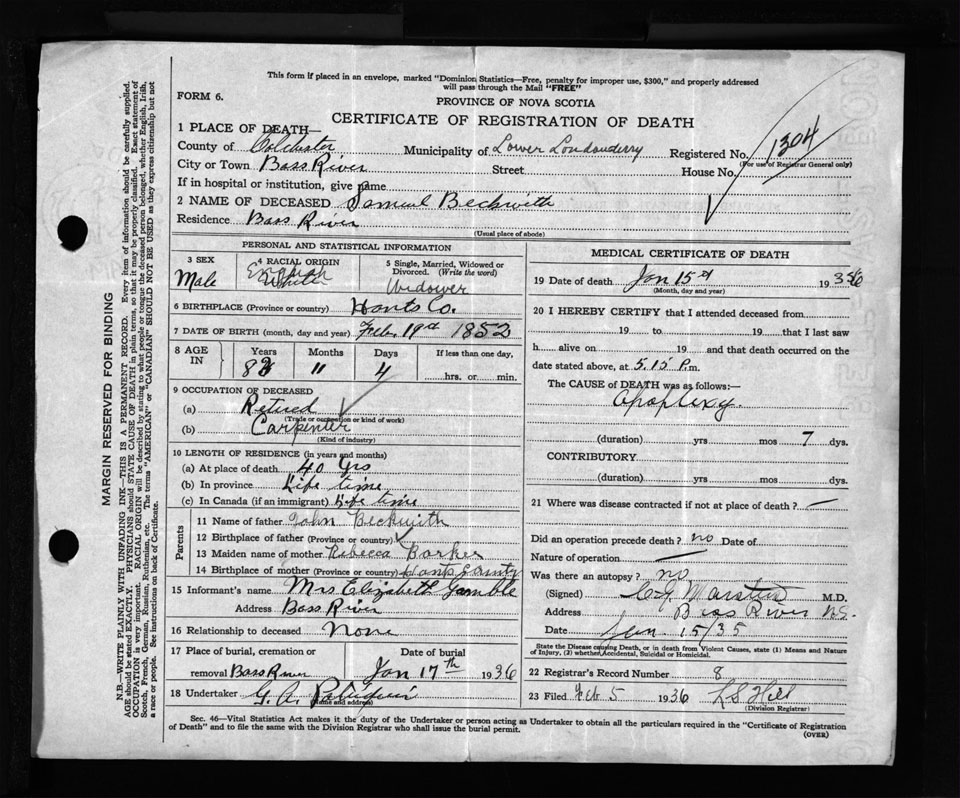 This form if placed in an envelope, marked "Dominion Statistics—Free, penalty for improper use, $300," and properly addressed
will pass through the Mail "FREE"
FORM 6.
PROVINCE OF NOVA SCOTIA
CERTIFICATE OF REGISTRATION OF DEATH
1 PLACE OF DEATH—
County of Colchester Municipality of Lower Londonderry Registered No. 1304
(For use of Registrar General only)
City or Town Bass River Street House No.
If in hospital or institution, give name
2 NAME OF DECEASED Samuel Beckwith
Residence Bass River
(Usual place of abode)
PERSONAL AND STATISTICAL INFORMATION
3 SEX
Male
4 RACIAL ORIGIN
English
White
5 Single, Married, Widowed or
Divorced. (Write the word)
Widower
6 BIRTHPLACE (Province or country) Hants Co.
7 DATE OF BIRTH (month, day and year) Feb. 19th 1852
8 AGE IN
Years Months Days If less than one day,
83 11 4 hrs. or min.
9 OCCUPATION OF DECEASED
(a) Retired
(Trade or occupation or kind of work)
(b) Carpenter
(Kind of industry)
10 LENGTH OF RESIDENCE (in years and months)
(a) At place of death 40 yrs
(b) In province Life time
(c) In Canada (if an immigrant) Life time
Parents
11 Name of father John Beckwith
12 Birthplace of father (Province or country)
13 Maiden name of mother Rebecca Barker
14 Birthplace of mother (Province or country) Hants County
15 Informant's name Mrs Elizabeth Gamble
Address Bass River
16 Relationship to deceased None
17 Place of burial, cremation or Date of burial
removal Bass River Jan 17th 1936
18 Undertaker G. A.
(Name and address)
MEDICAL CERTIFICATE OF DEATH
19 Date of death Jan 15th 1936
(Month, day and year)
20 I HEREBY CERTIFY that I attended deceased from
19 to 19 that I last saw
h alive on 19 and that death occurred on the
date stated above, at 5.15 P.m.
The CAUSE of DEATH was as follows:—
Apoplexy.
(duration) yrs mos 7 dys.
CONTRIBUTORY
(duration) yrs mos dys.
21 Where was disease contracted if not at place of death? —
Did an operation precede death? no Date of
Nature of operation —
Was there an autopsy? no
(Signed) M.D.
Address Bass River NS
Date Jan. 15/35
State the Disease causing Death, or in death from Violent Causes, state (1) Means and Nature
of Injury, (2) whether Accidental, Suicidal or Homicidal.
22 Registrar's Record Number 8
23 Filed Feb 5 1936 LS Hill
(Division Registrar)
Sec. 46—Vital Statistics Act makes it the duty of the Undertaker or person acting as Undertaker to obtain all the particulars required in the "Certificate of Registration
of Death" and to file the same with the Division Registrar who shall issue the burial permit.
(OVER)
MARGIN RESERVED FOR BINDING
N.B.—WRITE PLAINLY WITH UNFADING INK—THIS IS A PERMANENT RECORD. Every item of information should be carefully supplied.
AGE should be stated EXACTLY. PHYSICIANS should STATE CAUSE OF DEATH in plain terms, so that it may be properly classified. Exact statement of
OCCUPATION is very important. RACIAL ORIGIN will be described by stating to what people or tongue the deceased person belonged, whether English, Irish,
Scotch, French, German, Russian, Ruthenian, etc. The terms "AMERICAN" or "CANADIAN" SHOULD NOT BE USED as they express citizenship but not
a race or people. See instructions on back of Certificate.